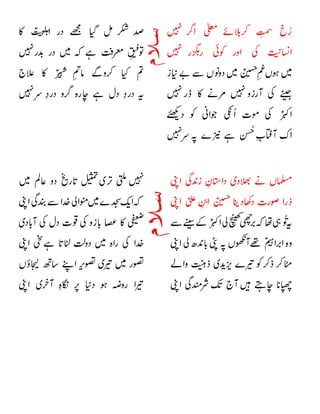 سلام
رُخ سمتِ کربلائے معلیٰ اگر نہیں
انسانیت کی اور کوئی رہگزر نہیں
ہوں میں غمِ حسینؑ میں دونوں سے بے نیاز
جینے کی آرزو نہیں مرنے کا ڈر نہیں
اکبرؑ کی موت اُنکی جوانی کو دیکھئے
اک آفتابِ حُسن ہے نیزے پہ سر نہیں
صد شکر مل گیا مجھے در اہلبیتؑ کا
توفیقِ معرفت ہے کہ میں در بدر نہیں
تم کیا کروگے ماتمِ شبیرؑ کا علاج
یہ دردِ دل ہے چارہ گرو دردِ سر نہیں
سلام
مسلماں نے بھلادی داستانِ زندگی اپنی
ذرا صورت دکھادینا حسینؑ ابنِ علیؑ اپنی
یہ تُو ہی تھا کہ برچھی کھینچ لی اکبرؑ کے سینے سے
وہ ابراہیمؑ تھے آنکھوں پہ پٹی باندھ لی اپنی
مٹا کر ذکر کو تیرے یزیدی ذہنیت والے
چھپانا چاہتے ہیں آج تک شرمندگی اپنی
نہیں ملتی تری تمثیل تاریخِ دو عالم میں
کہ اک سجدے میں منوالی خدا سے بندگی اپنی
ضعیفی کا عصا بازو کی قوت دل کی آبادی
خدا کی راہ میں دولت لٹاتا ہے سخی اپنی
تصور میں تیری تصویر اپنے ساتھ لیجاؤں
ترا روضہ ہو دنیا پر نگاہِ آخری اپنی